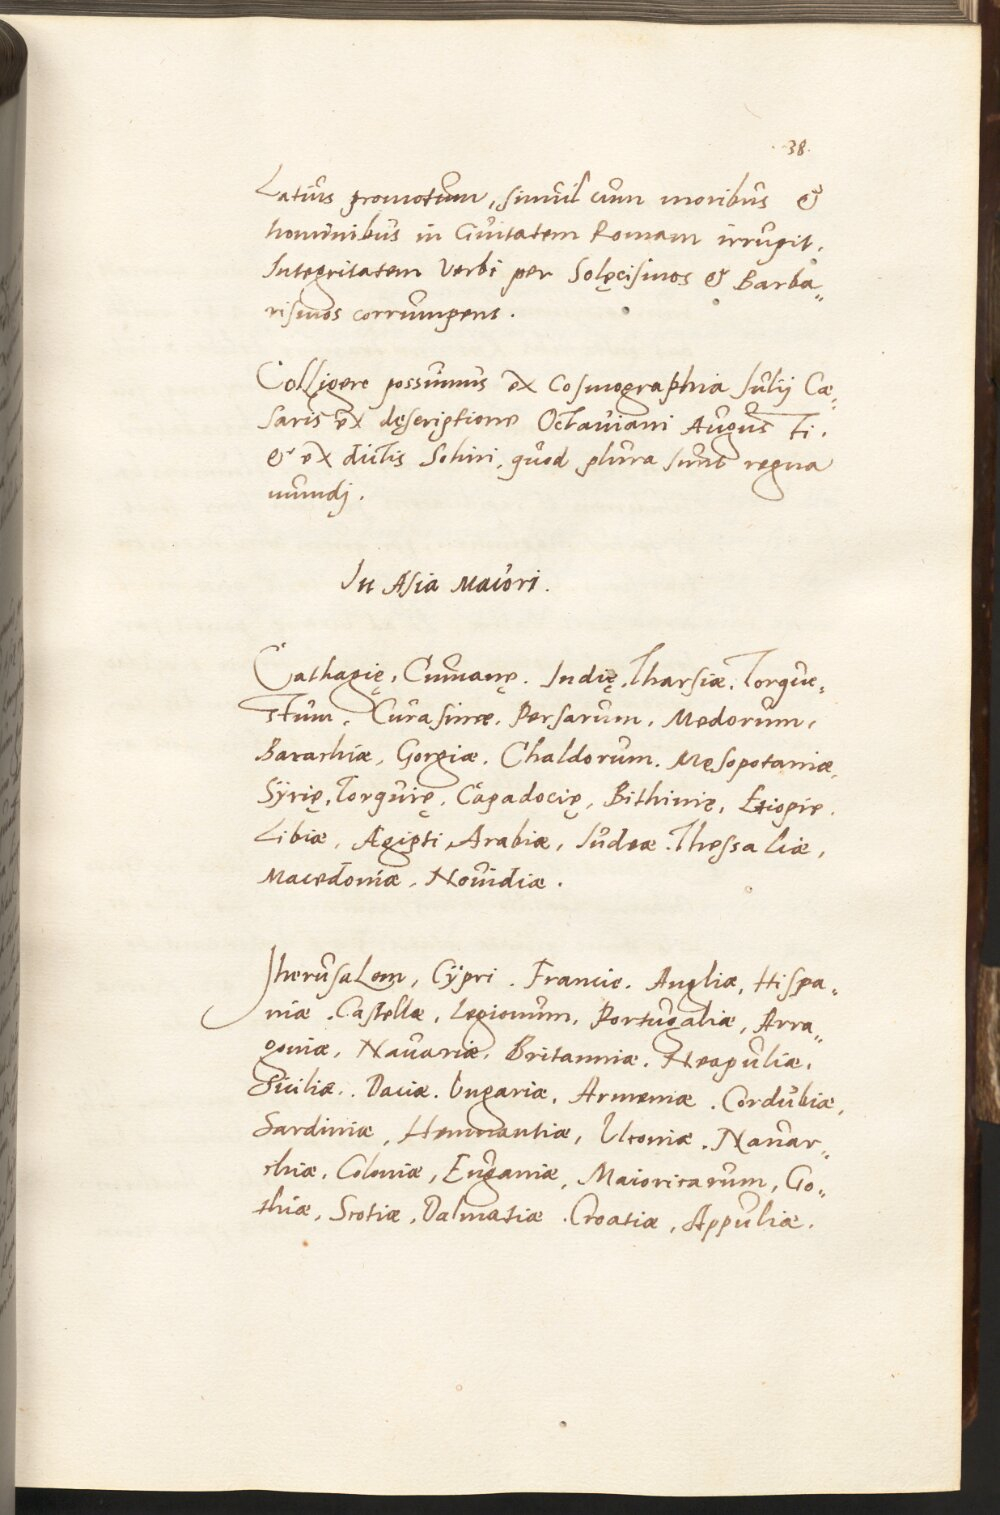 ·38·
Latius promotum, simul cum moribus &
hominibus in Ciuitatem Romam irrupit,
Integritatem Verbi per Solęcismos & Barba„
rismos corrumpens.
Colligere possumus ex Cosmographia Iulij Cæ„
saris ex dęscriptione Octauiani Augusti.
& ex dictis Solini, quod plura sunt regna
mundj.
In Asia Maiori.
Cathagię, Cumanę. Indię, Tharsiæ. Torque„
stum, Curasimæ, Persarum, Medorum,
Barachiæ, Gorgiæ, Chaldorum. Męsopotamiæ,
Syrię, Torquię, Capadocię, Bithinię, Etiopię.
Libiæ, Ægipti, Arabiæ, Iudeæ. Thessaliæ,
Macedoniæ, Nouidiæ.
Jherusalem, Cÿpri. Francie. Angliæ, Hispa„
niæ. Castellæ, Legionum, Portugaliæ, Arra„
goniæ, Nauariæ, Britanniæ. Neapuliæ,
Siciliæ. Daciæ. Ungariæ, Armeniæ. Cordubiæ,
Sardiniæ, Hemmantiæ, Ultoniæ. Nauar„
chiæ, Coloniæ, Euganiæ, Maioricarum, Go„
thiæ, Scotiæ, Dalmatiæ. Croatiæ, Appuliæ.